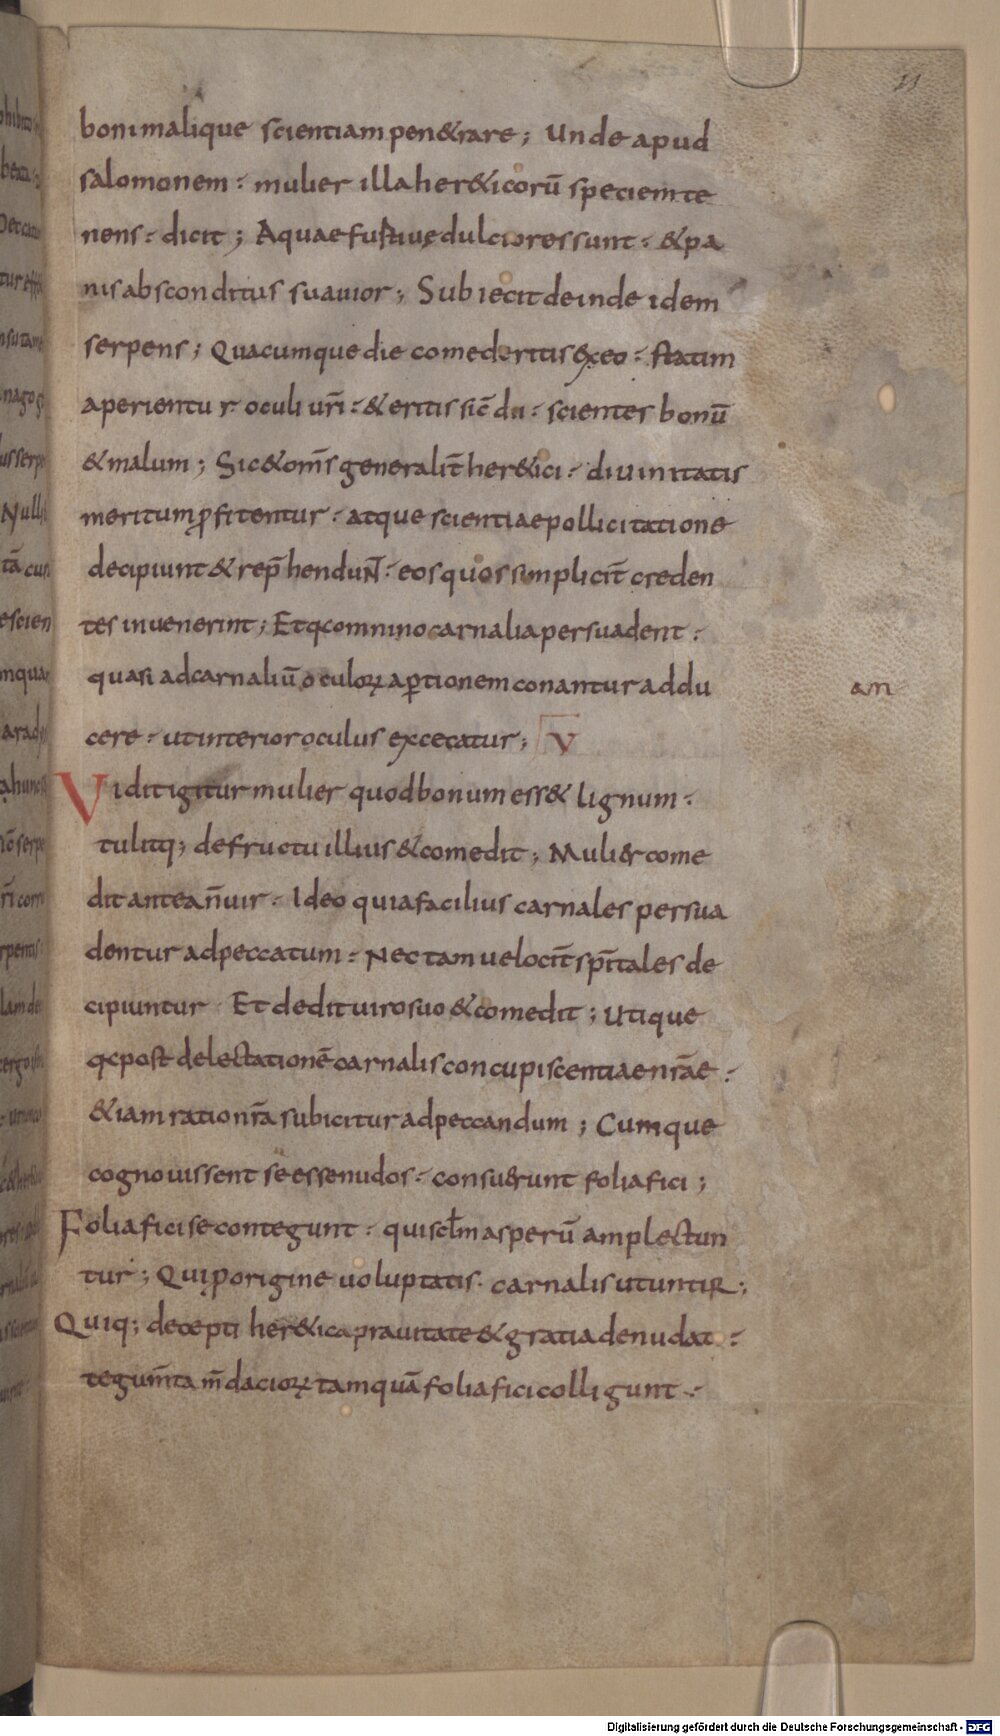 23
boni malique scientiam pen&rare; Unde apud
salomonem: mulier illa her&icorū speciem te
nens: dicit; Aquae furtivę dulciores sunt: & pa
nis absconditus suavior; Subiecit deinde idem
serpens; Quacumque die comederitis ex eo: statim
aperientur oculi ur̄i: & eritis sic̄ dii: scientes bonū
& malum; Sic & om̄s generalit̄ her&ici: divinitatis
meritum ꝓfitentur: atque scientiae pollicitatione
decipiunt & rep̄hendunt̄: eos quos simplicit̄ creden
tes invenerint; Et qc omnino carnalia persuadent:
quasi ad carnaliū oculoꝝ aꝑtionem conantur addu
cere: ut interior oculus excecatur; V
Vidit igitur mulier quod bonum ess& lignum:
tulitq; de fructu illius & comedit; Muli&r come
dit antea n̄ vir: Ideo quia facilius carnales persua
dentur ad peccatum: Nec tam velocit̄ sp̄itales de
cipiuntur Et dedit viro suo & comedit; Utique
qc post delectationē carnalis concupiscentiae nr̄ae:
& iam ratio nr̄a subicitur ad peccandum; Cumque
cognovissent se esse nudos: consu&runt folia fici;
Folia fici se contegunt: qui sc̄lm asperū amplectun
tur; Qui ꝓ origine voluptatis carnalis utuntur;
Quiq; decepti her&ica pravitate & gratia denudat:
tegum̄ta m̄dacioꝝ tamquā folia fici colligunt:
Digitalisierung gefördert durch die Deutsche Forschungsgemeinschaft - DFG